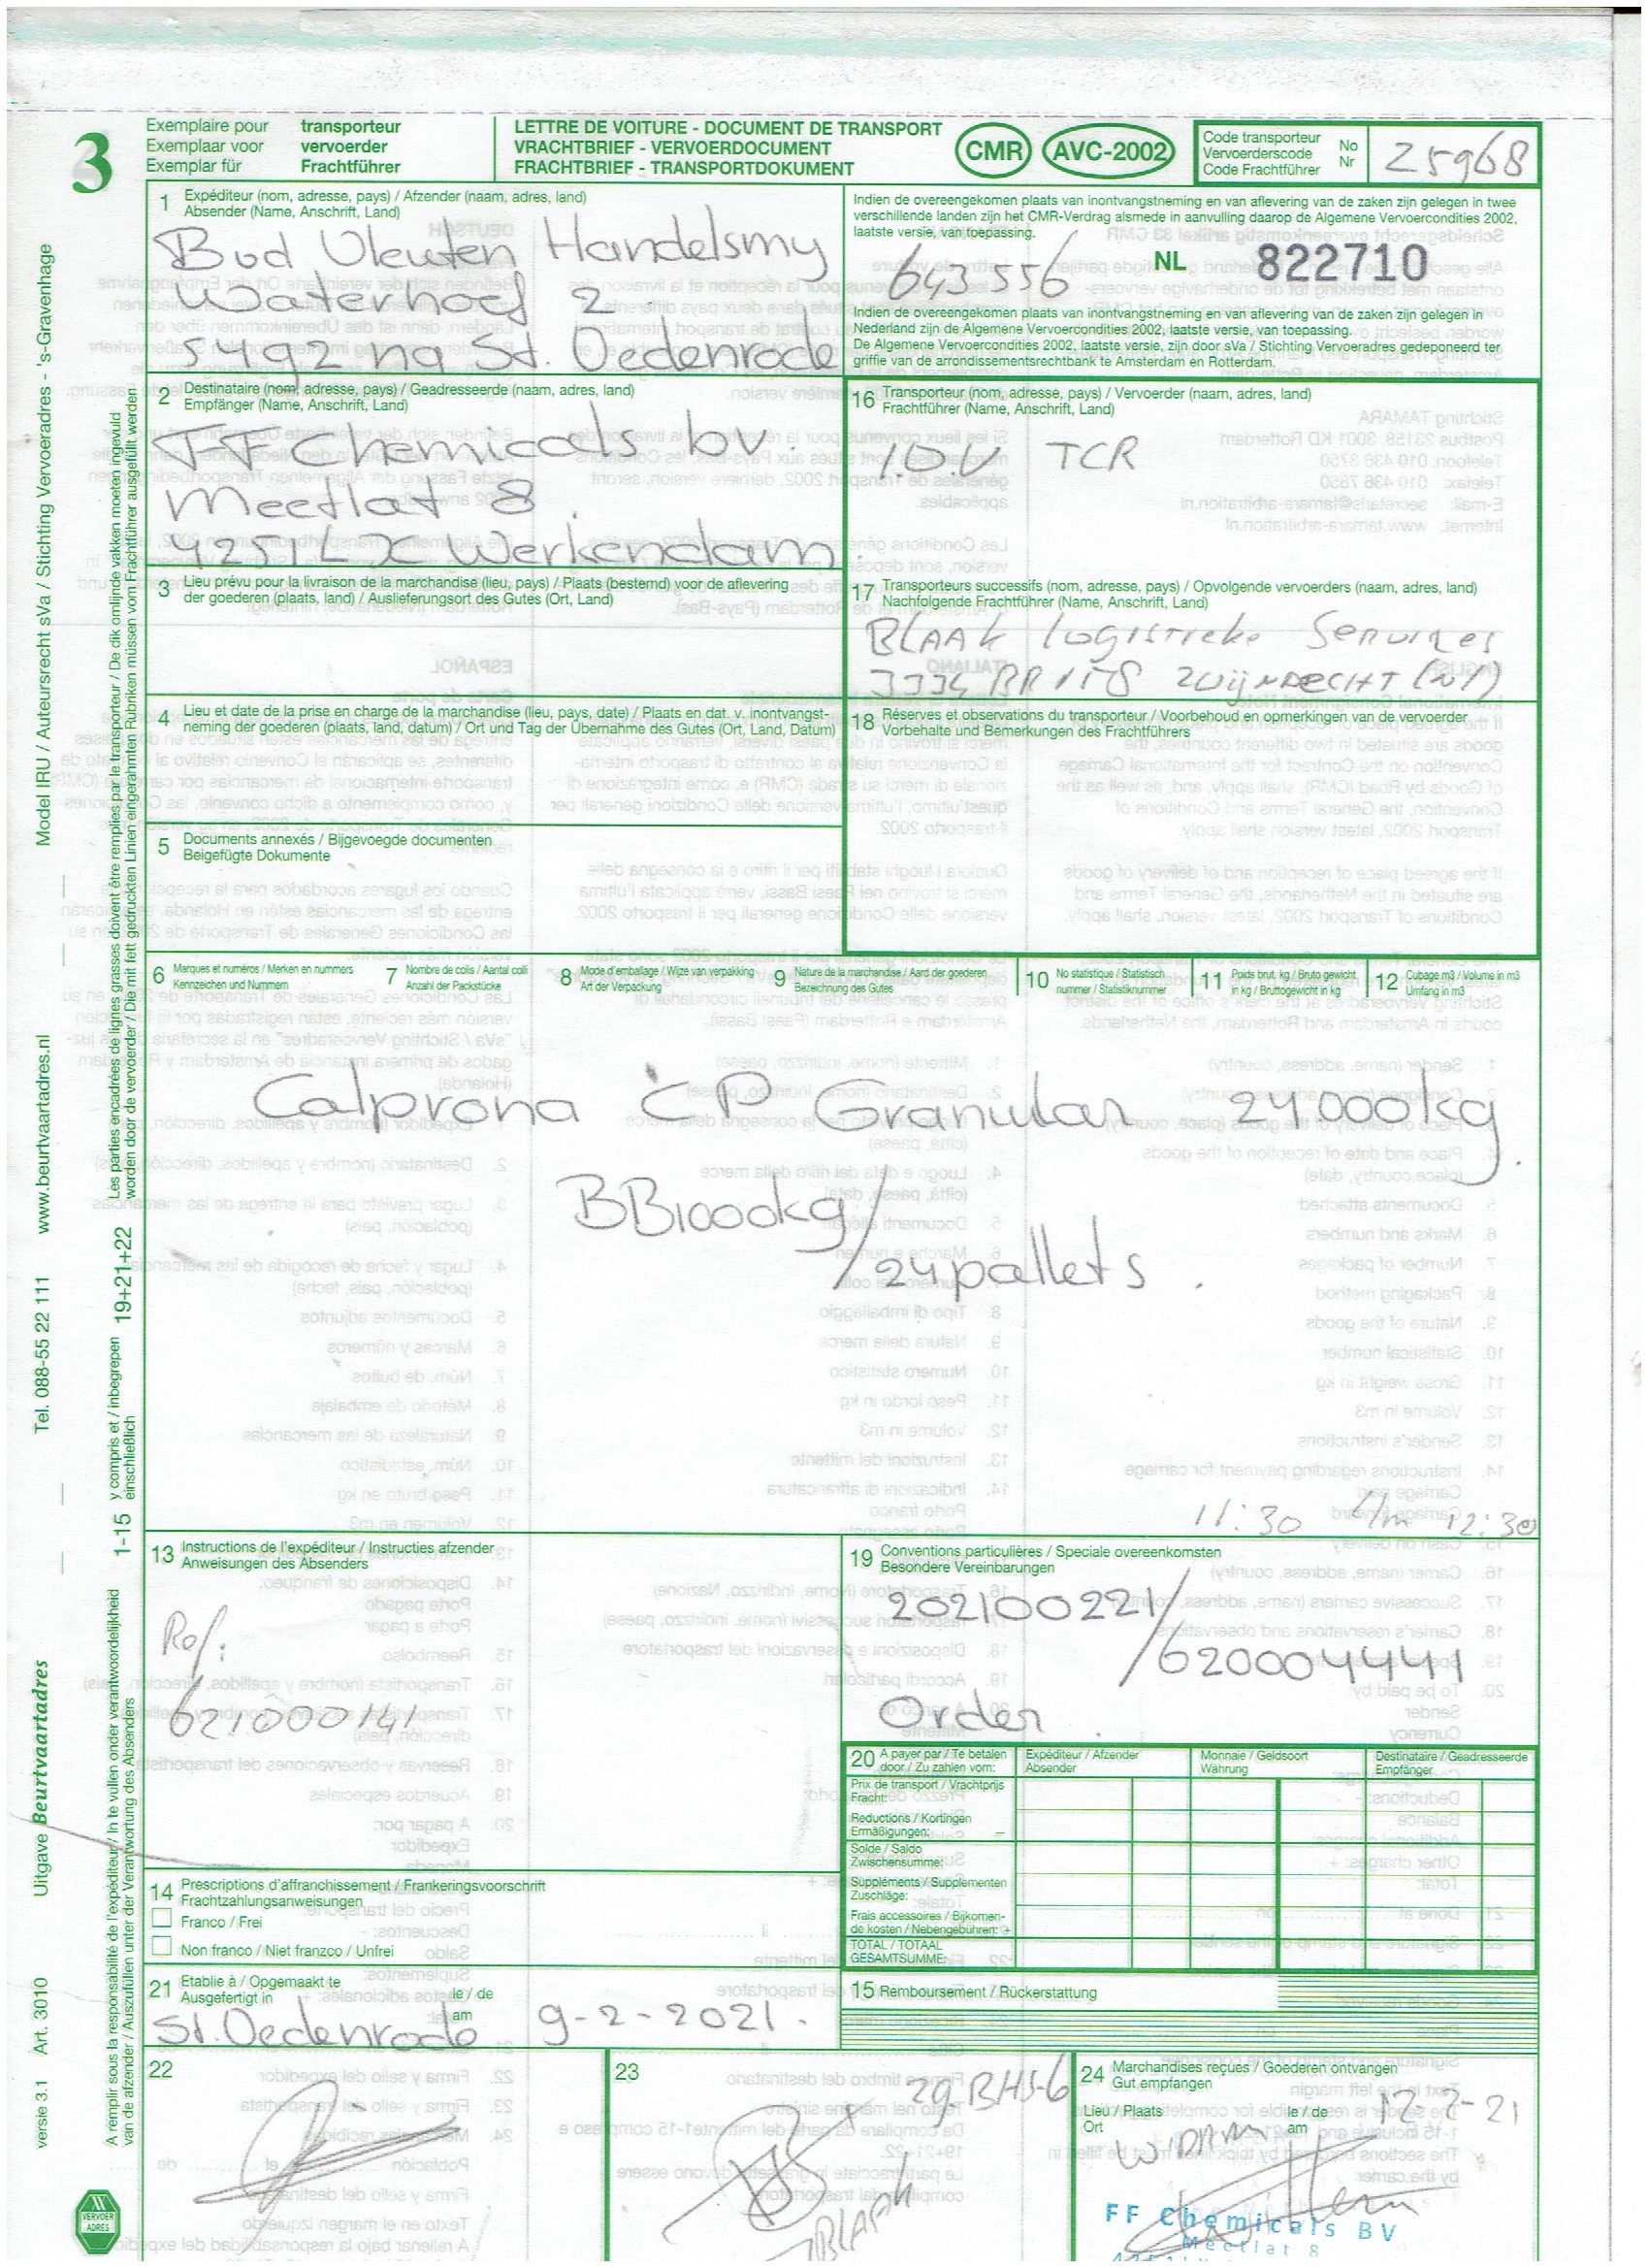 3
Exemplaire pour transporteur
Exemplaar voor vervoerder
Exemplar für Frachtführer
LETTRE DE VOITURE - DOCUMENT DE TRANSPORT
VRACHTBRIEF - VERVOERDOCUMENT
FRACHTBRIEF - TRANSPORTDOKUMENT
CMR AVC-2002
Code transporteur No
Vervoerderscode Nr
Code Frachtführer
25968
1 Expéditeur (nom, adresse, pays) / Afzender (naam, adres, land)
Absender (Name, Anschrift, Land)
Bud Vleuten Handelsmy
Waterhoef 2
5492 na St. Oedenrode
Indien de overeengekomen plaats van inontvangstneming en van aflevering van de zaken zijn gelegen in twee
verschillende landen zijn het CMR-Verdrag alsmede in aanvulling daarop de Algemene Vervoercondities 2002,
laatste versie, van toepassing.
643556 NL 822710
Indien de overeengekomen plaats van inontvangstneming en van aflevering van de zaken zijn gelegen in
Nederland zijn de Algemene Vervoercondities 2002, laatste versie, van toepassing.
De Algemene Vervoercondities 2002, laatste versie, zijn door sVa / Stichting Vervoeradres gedeponeerd ter
griffie van de arrondissementsrechtbank te Amsterdam en Rotterdam.
2 Destinataire (nom, adresse, pays) / Geadresseerde (naam, adres, land)
Empfänger (Name, Anschrift, Land)
FF Chemicals bv.
Meetlat 8
4251LX Werkendam
16 Transporteur (nom, adresse, pays) / Vervoerder (naam, adres, land)
Frachtführer (Name, Anschrift, Land)
I.O.V TCR
3 Lieu prévu pour la livraison de la marchandise (lieu, pays) / Plaats (bestemd) voor de aflevering
der goederen (plaats, land) / Auslieferungsort des Gutes (Ort, Land)
17 Transporteurs successifs (nom, adresse, pays) / Opvolgende vervoerders (naam, adres, land)
Nachfolgende Frachtführer (Name, Anschrift, Land)
BLAAK Logistieke Services
ZWIJNDRECHT
4 Lieu et date de la prise en charge de la marchandise (lieu, pays, date) / Plaats en dat. v. inontvangst-
neming der goederen (plaats, land, datum) / Ort und Tag der Übernahme des Gutes (Ort, Land, Datum)
18 Réserves et observations du transporteur / Voorbehoud en opmerkingen van de vervoerder
Vorbehalte und Bemerkungen des Frachtführers
5 Documents annexés / Bijgevoegde documenten
Beigefügte Dokumente
6 Marques et numéros / Merken en nummers
Kennzeichen und Nummern
7 Nombre de colis / Aantal colli
Anzahl der Packstücke
8 Mode d'emballage / Wijze van verpakking
Art der Verpackung
9 Nature de la marchandise / Aard der goederen
Bezeichnung des Gutes
10 No statistique / Statistisch
nummer / Statistiknummer
11 Poids brut, kg / Bruto gewicht
in kg / Bruttogewicht in kg
12 Cubage m3 / Volume in m3
Umfang in m3
Calprona CP Granular 24000kg.
BB1000kg/
/24pallets.
11:30 t/m 12:30
13 Instructions de l'expéditeur / Instructies afzender
Anweisungen des Absenders
Ref:
621000141
19 Conventions particulières / Speciale overeenkomsten
Besondere Vereinbarungen
202100221/
/620004441
Order.
20 A payer par / Te betalen
door / Zu zahlen vom:
Expéditeur / Afzender
Absender
Monnaie / Geldsoort
Währung
Destinataire / Geadresseerde
Empfänger
Prix de transport / Vrachtprijs
Fracht:
Reductions / Kortingen
Ermäßigungen: –
Solde / Saldo
Zwischensumme:
Suppléments / Supplementen
Zuschläge:
Frais accessoires / Bijkomen-
de kosten / Nebengebühren: +
TOTAL / TOTAAL
GESAMTSUMME:
14 Prescriptions d'affranchissement / Frankeringsvoorschrift
Frachtzahlungsanweisungen
Franco / Frei
Non franco / Niet franzco / Unfrei
21 Etablie à / Opgemaakt te le / de
Ausgefertigt in am
St. Oedenrode 9-2-2021.
15 Remboursement / Rückerstattung
22
23
29BHS-6
BLAAK
24 Marchandises reçues / Goederen ontvangen
Gut empfangen
Lieu / Plaats le / de
Ort am
12-2-21
FF Chemicals BV
Meetlat 8
Model IRU / Auteursrecht sVa / Stichting Vervoeradres - 's-Gravenhage
www.beurtvaartadres.nl
Tel. 088-55 22 111
Uitgave Beurtvaartadres
Art. 3010
versie 3.1
Les parties encadrées de lignes grasses doivent être remplies par le transporteur / De dik omlijnde vakken moeten ingevuld
worden door de vervoerder / Die mit fett gedruckten Linien eingerahmten Rubriken müssen vom Frachtführer ausgefüllt werden
19+21+22
y compris et / inbegrepen
einschließlich
1-15
A remplir sous la responsabilité de l'expéditeur / In te vullen onder verantwoordelijkheid
van de afzender / Auszufüllen unter der Verantwortung des Absenders
VERVOER
ADRES